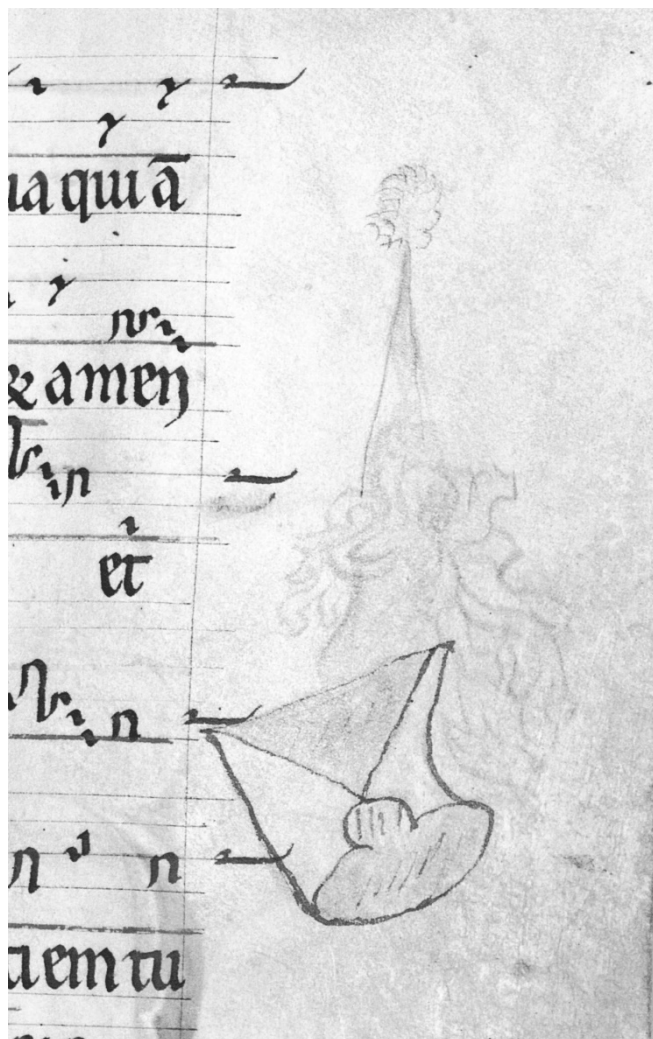 ua quia ā
& amen
et
ciem tu